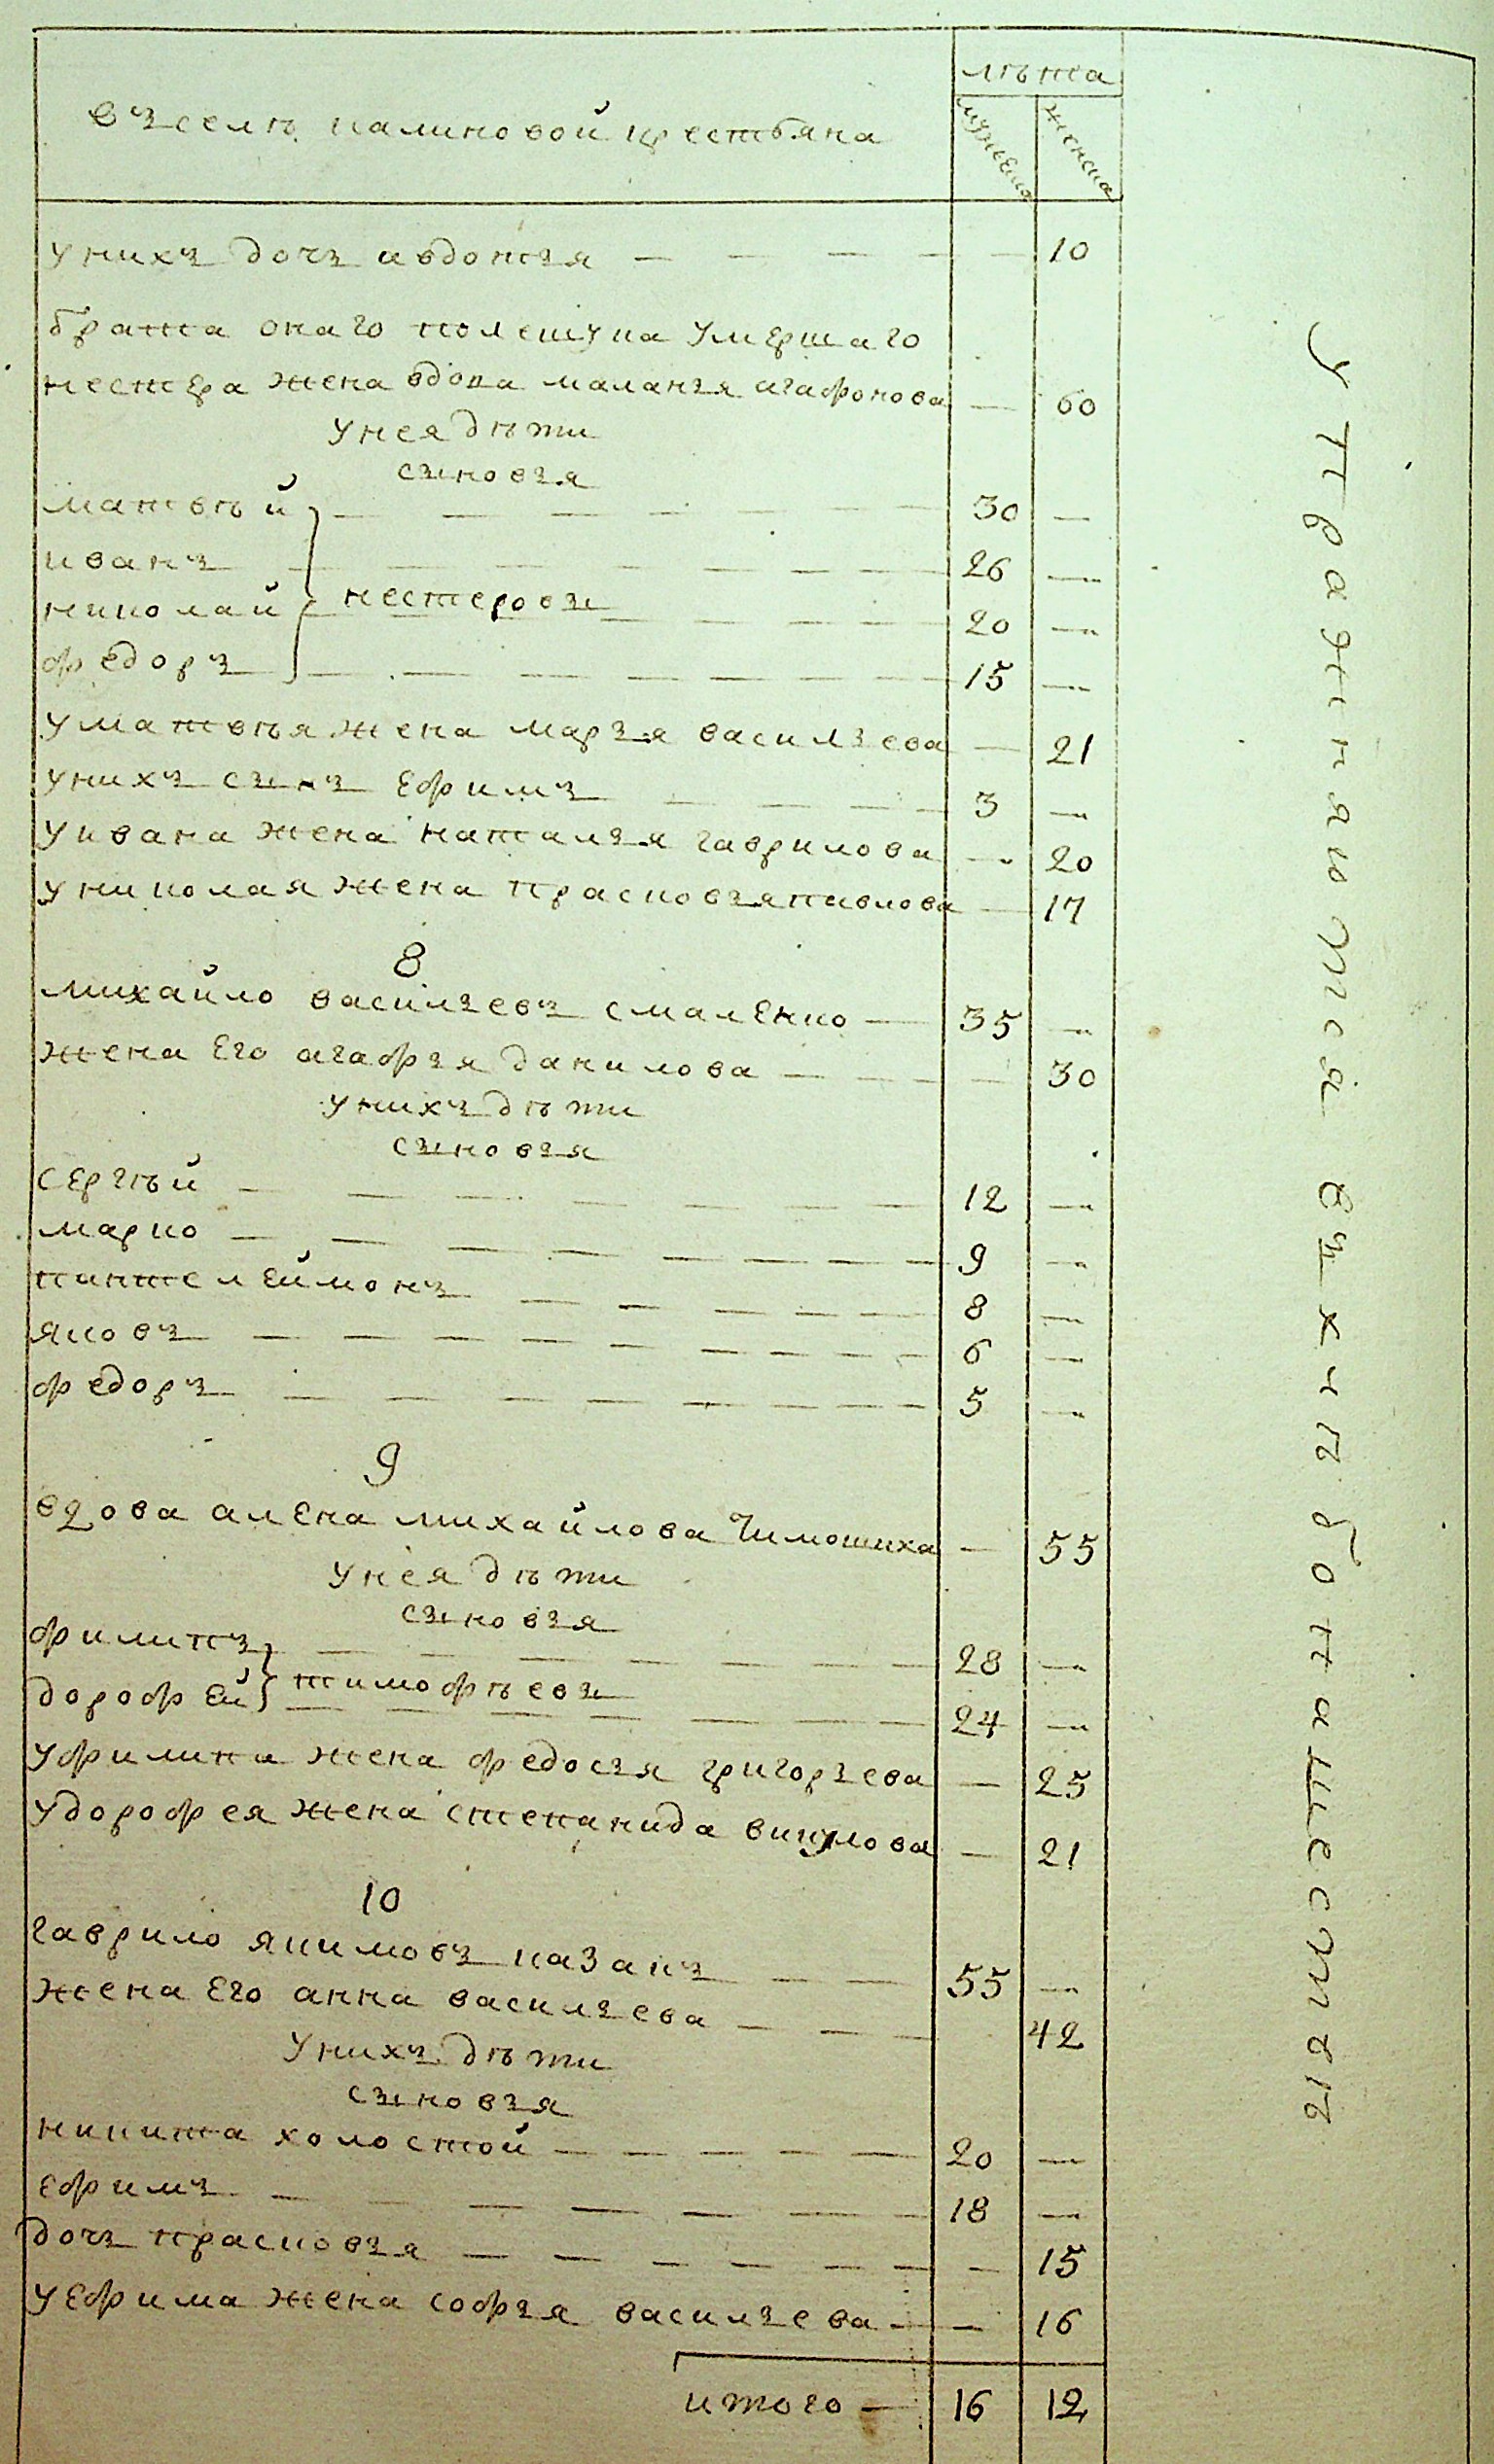 лѣта
въ селѣ калиновой крестьяна
мужеска
женска
у нихъ дочъ авдотъя — — — — — 10
брата онаго полешука умершаго
нестера жена вдова маланъя агафонова — 60
у нея дѣти
сыновъя
матвѣй — — — — — 30 —
иванъ — — — — — 26 —
николай нестеровы — — — — 20 —
федоръ — — — — — 15 —
у матвѣя жена маръя василъева — 21
у нихъ сынъ ефимъ — — — — 3 —
у ивана жена наталъя гаврилова — 20
у николая жена прасковъя павлова — 17
8
михайло василъевъ смаленко — 35 —
жена его агафъя данилова — — — — 30
у нихъ дѣти
сыновъя
сергѣй — — — — — — — — 12 —
марко — — — — — — — — 9 —
пантелеймонъ — — — — — 8 —
яковъ — — — — — — — — 6 —
федоръ — — — — — — — — 5 —
9
вдова алена михайлова Тимошиха — 55
у нея дѣти
сыновъя
филипъ — — — — — — — 28 —
дорофей тимофѣевы — — — — — — 24 —
у филипа жена федосъя григоръева — 25
у дорофея жена степанида викулова — 21
10
гаврило якимовъ казанъ — — 55 —
жена его анна василъева — — — 42
у нихъ дѣти
сыновъя
никита холостой — — — — — 20 —
ефимъ — — — — — — — 18 —
дочъ прасковъя — — — — — — — 15
у ефима жена софъя василъева — — 16
итого — 16 12
упражняются въ хлѣбопашествѣ